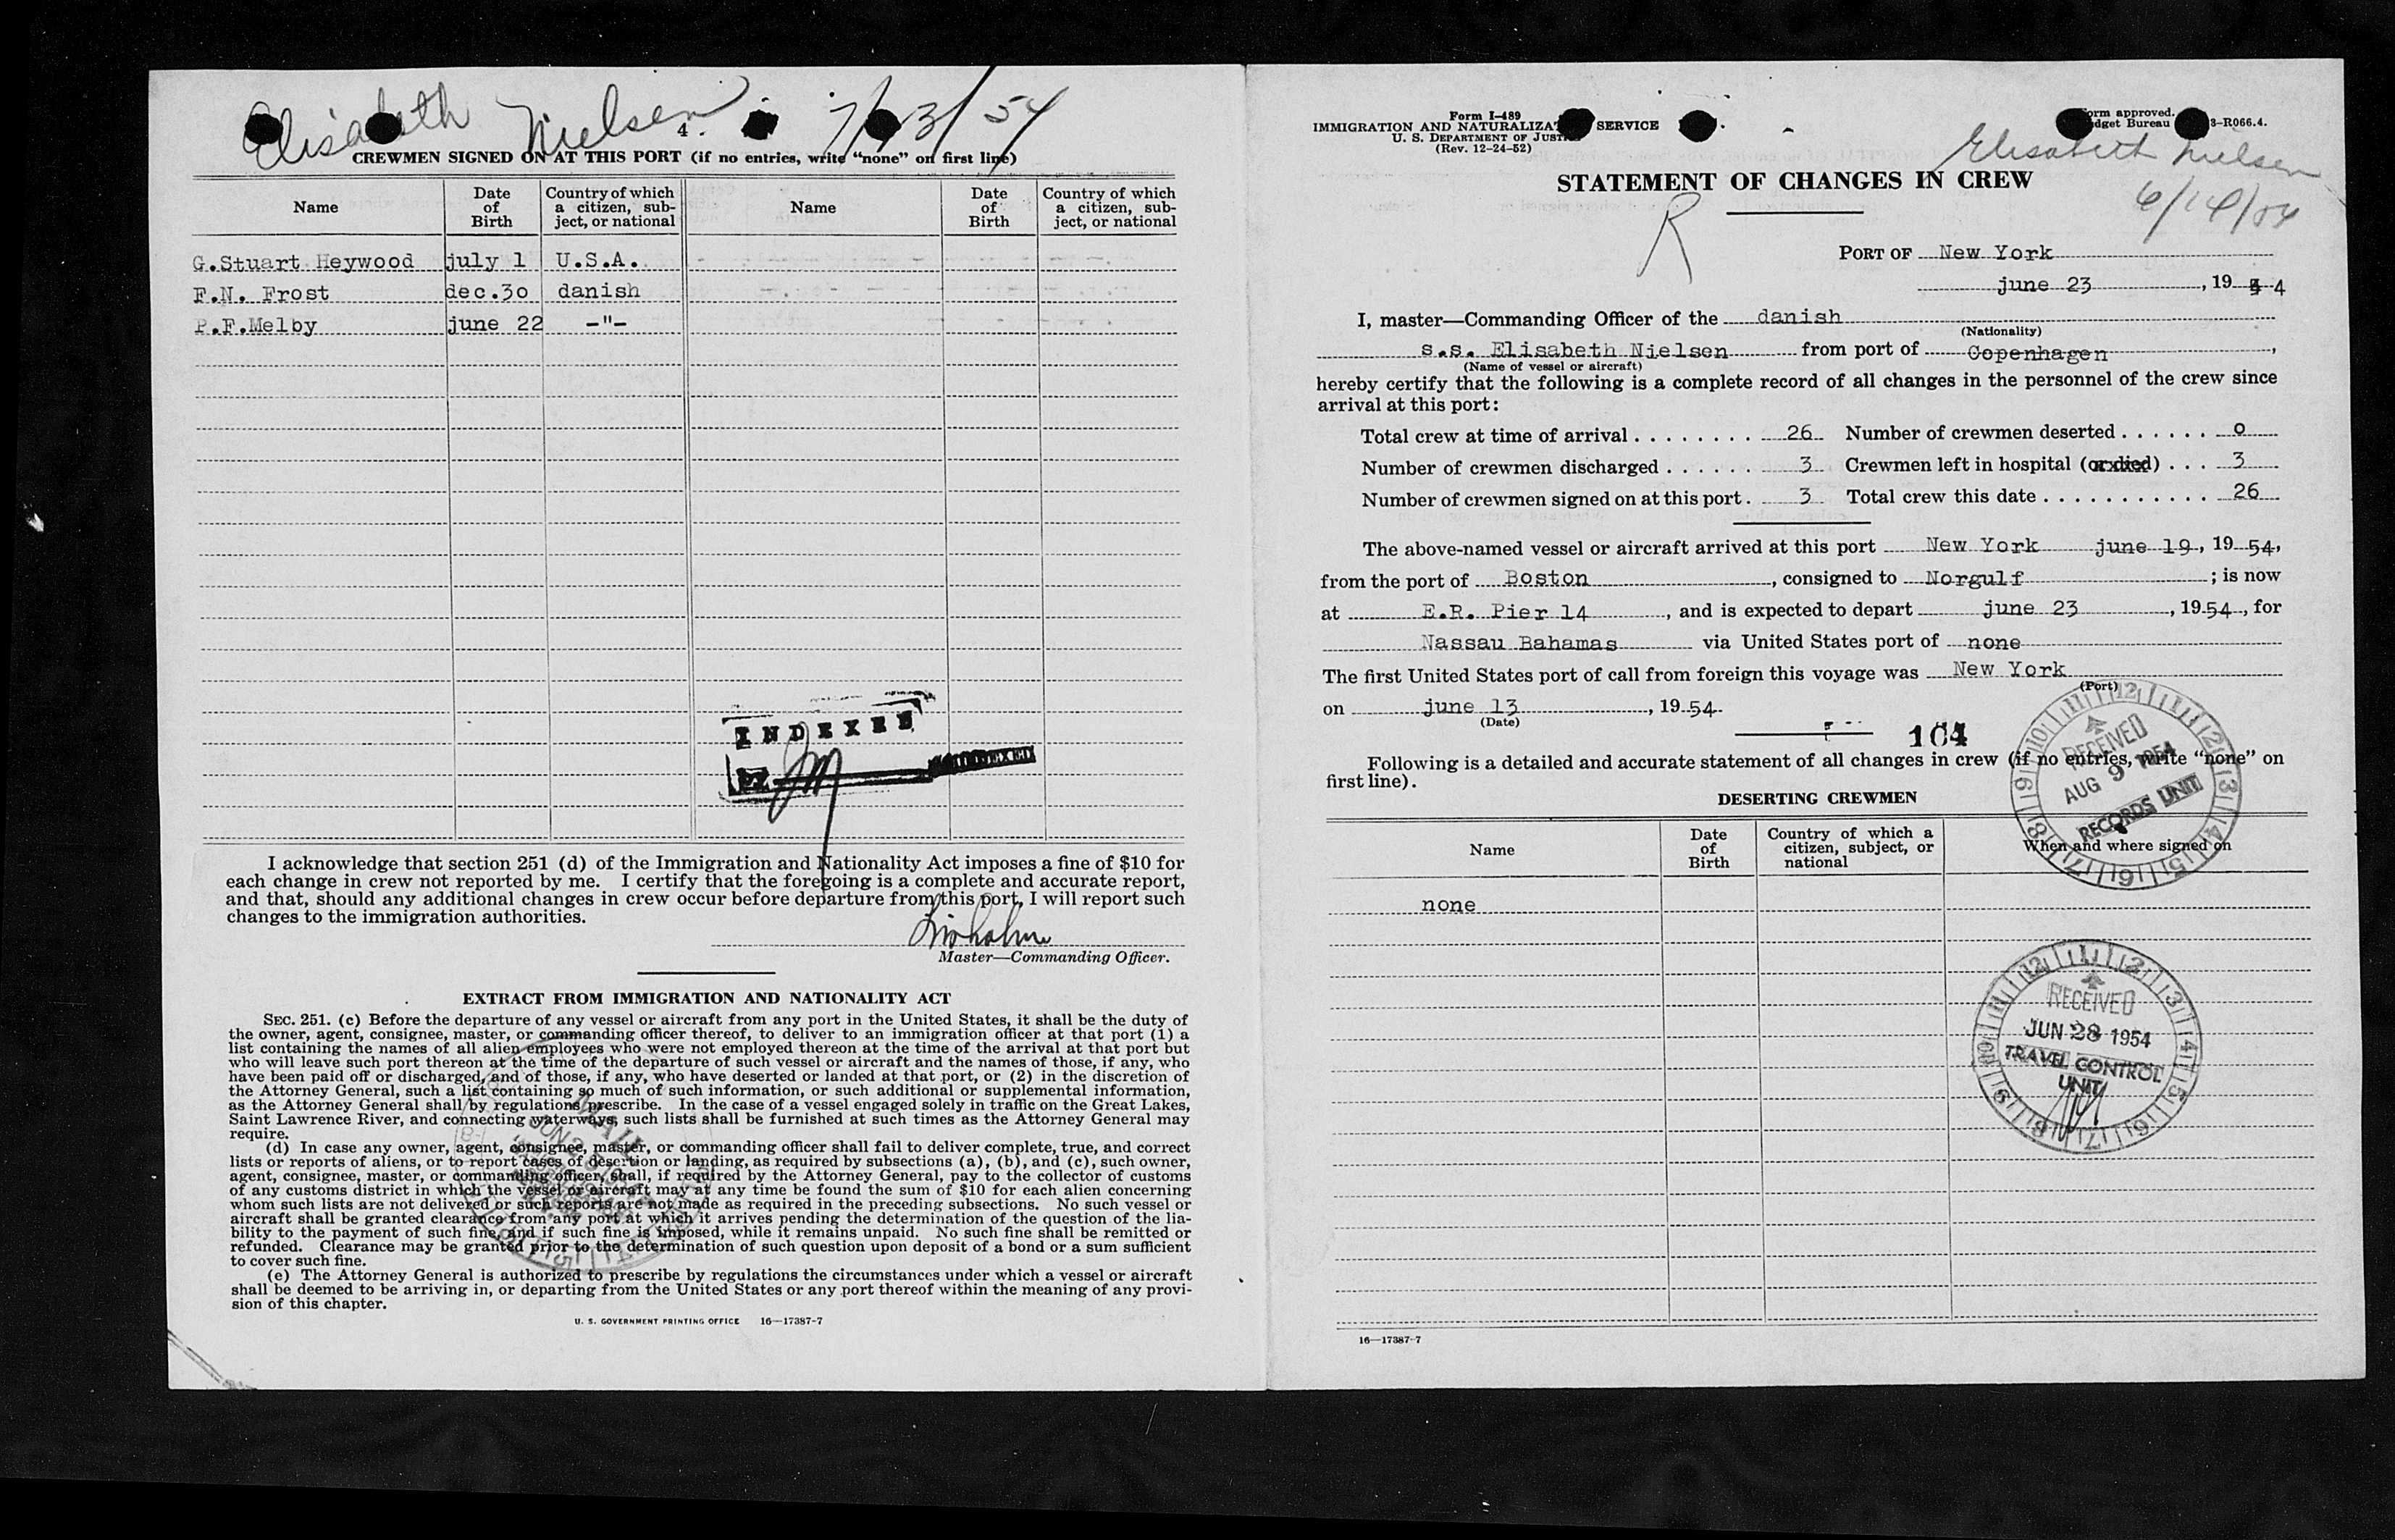 Elisabeth Nielsen 7/13/54
4.
CREWMEN SIGNED ON AT THIS PORT (if no entries, write “none” on first line)
Name Date of Birth Country of which a citizen, subject, or national Name Date of Birth Country of which a citizen, subject, or national
G.Stuart Heywood july 1 U.S.A.
F.N. Frost dec.30 danish
P.F.Melby june 22 -"-
INDEXED
I acknowledge that section 251 (d) of the Immigration and Nationality Act imposes a fine of $10 for
each change in crew not reported by me. I certify that the foregoing is a complete and accurate report,
and that, should any additional changes in crew occur before departure from this port, I will report such
changes to the immigration authorities.
Master—Commanding Officer.
EXTRACT FROM IMMIGRATION AND NATIONALITY ACT
SEC. 251. (c) Before the departure of any vessel or aircraft from any port in the United States, it shall be the duty of
the owner, agent, consignee, master, or commanding officer thereof, to deliver to an immigration officer at that port (1) a
list containing the names of all alien employees who were not employed thereon at the time of the arrival at that port but
who will leave such port thereon at the time of the departure of such vessel or aircraft and the names of those, if any, who
have been paid off or discharged, and of those, if any, who have deserted or landed at that port, or (2) in the discretion of
the Attorney General, such a list containing so much of such information, or such additional or supplemental information,
as the Attorney General shall by regulations prescribe. In the case of a vessel engaged solely in traffic on the Great Lakes,
Saint Lawrence River, and connecting waterways, such lists shall be furnished at such times as the Attorney General may
require.
(d) In case any owner, agent, consignee, master, or commanding officer shall fail to deliver complete, true, and correct
lists or reports of aliens, or to report cases of desertion or landing, as required by subsections (a), (b), and (c), such owner,
agent, consignee, master, or commanding officer, shall, if required by the Attorney General, pay to the collector of customs
of any customs district in which the vessel or aircraft may at any time be found the sum of $10 for each alien concerning
whom such lists are not delivered or such reports are not made as required in the preceding subsections. No such vessel or
aircraft shall be granted clearance from any port at which it arrives pending the determination of the question of the lia-
bility to the payment of such fine, and if such fine is imposed, while it remains unpaid. No such fine shall be remitted or
refunded. Clearance may be granted prior to the determination of such question upon deposit of a bond or a sum sufficient
to cover such fine.
(e) The Attorney General is authorized to prescribe by regulations the circumstances under which a vessel or aircraft
shall be deemed to be arriving in, or departing from the United States or any port thereof within the meaning of any provi-
sion of this chapter.
U. S. GOVERNMENT PRINTING OFFICE 16—17387-7
Form I-489
IMMIGRATION AND NATURALIZAT SERVICE
U. S. DEPARTMENT OF JUSTI
(Rev. 12-24-52)
orm approved.
dget Bureau 3-R066.4.
Elisabeth Nielsen
STATEMENT OF CHANGES IN CREW
R
PORT OF New York
june 23, 19 4
I, master—Commanding Officer of the danish
(Nationality)
s.s. Elisabeth Nielsen from port of Copenhagen,
(Name of vessel or aircraft)
hereby certify that the following is a complete record of all changes in the personnel of the crew since
arrival at this port:
Total crew at time of arrival . . . . . . . . 26 Number of crewmen deserted . . . . . . o
Number of crewmen discharged . . . . . . 3 Crewmen left in hospital (or died) . . . 3
Number of crewmen signed on at this port . 3 Total crew this date . . . . . . . . . . . 26
The above-named vessel or aircraft arrived at this port New York june 19, 19 54,
from the port of Boston, consigned to Norgulf; is now
at E.R. Pier 14, and is expected to depart june 23, 19 54, for
Nassau Bahamas via United States port of none
The first United States port of call from foreign this voyage was New York
(Port)
on june 13, 19 54
(Date)
104
Following is a detailed and accurate statement of all changes in crew (if no entries, write “none” on
first line).
RECEIVED
AUG 9 1954
RECORDS UNIT
DESERTING CREWMEN
Name Date of Birth Country of which a citizen, subject, or national When and where signed on
none
RECEIVED
JUN 28 1954
TRAVEL CONTROL
UNIT
16—17387-7